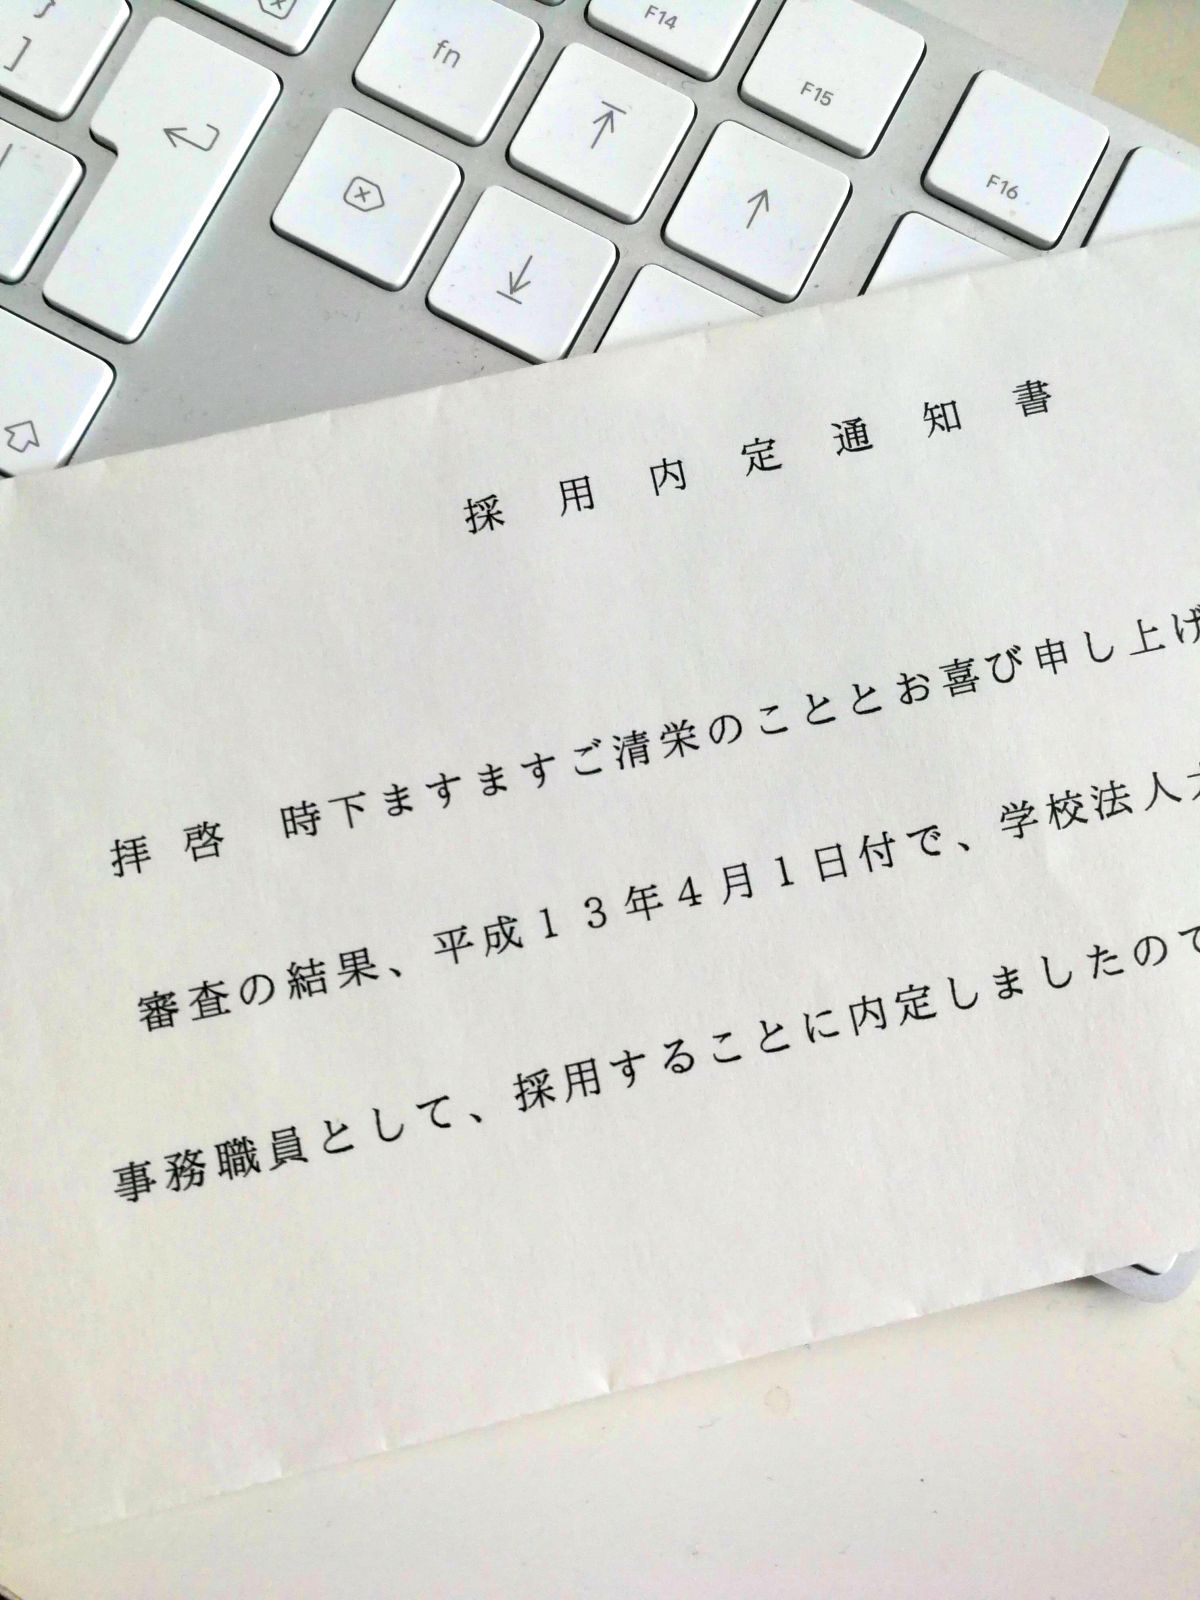 }
]
fn
F14
F15
F16
採用内定通知書
拝啓 時下ますますご清栄のこととお喜び申し上げ
審査の結果、平成13年4月1日付で、学校法人
事務職員として、採用することに内定しましたので